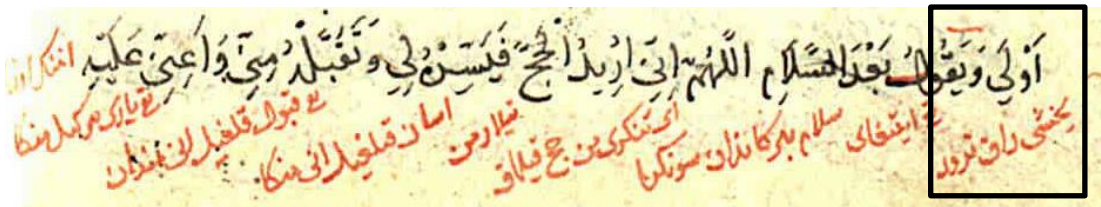 اَوْلَي وَيَقُولُ بَعْدَ السَّلَامِ اللّٰهُمَّ اِنِّي اُرِيدُ الْحَجَّ فَيَسِّرْهُ لِي وَتَقَبَّلْهُ مِنِّي وَاَعِنِّي عَلَيْهِ
يخشى راق ترور تى ايتقاى سلام بيركاندان سونكرا اى تنكرى من حج قيلماق تيلارمن اسان قلغيل انى منكا تى قبول قلغيل انى مندان تى يارى بركيل منكا